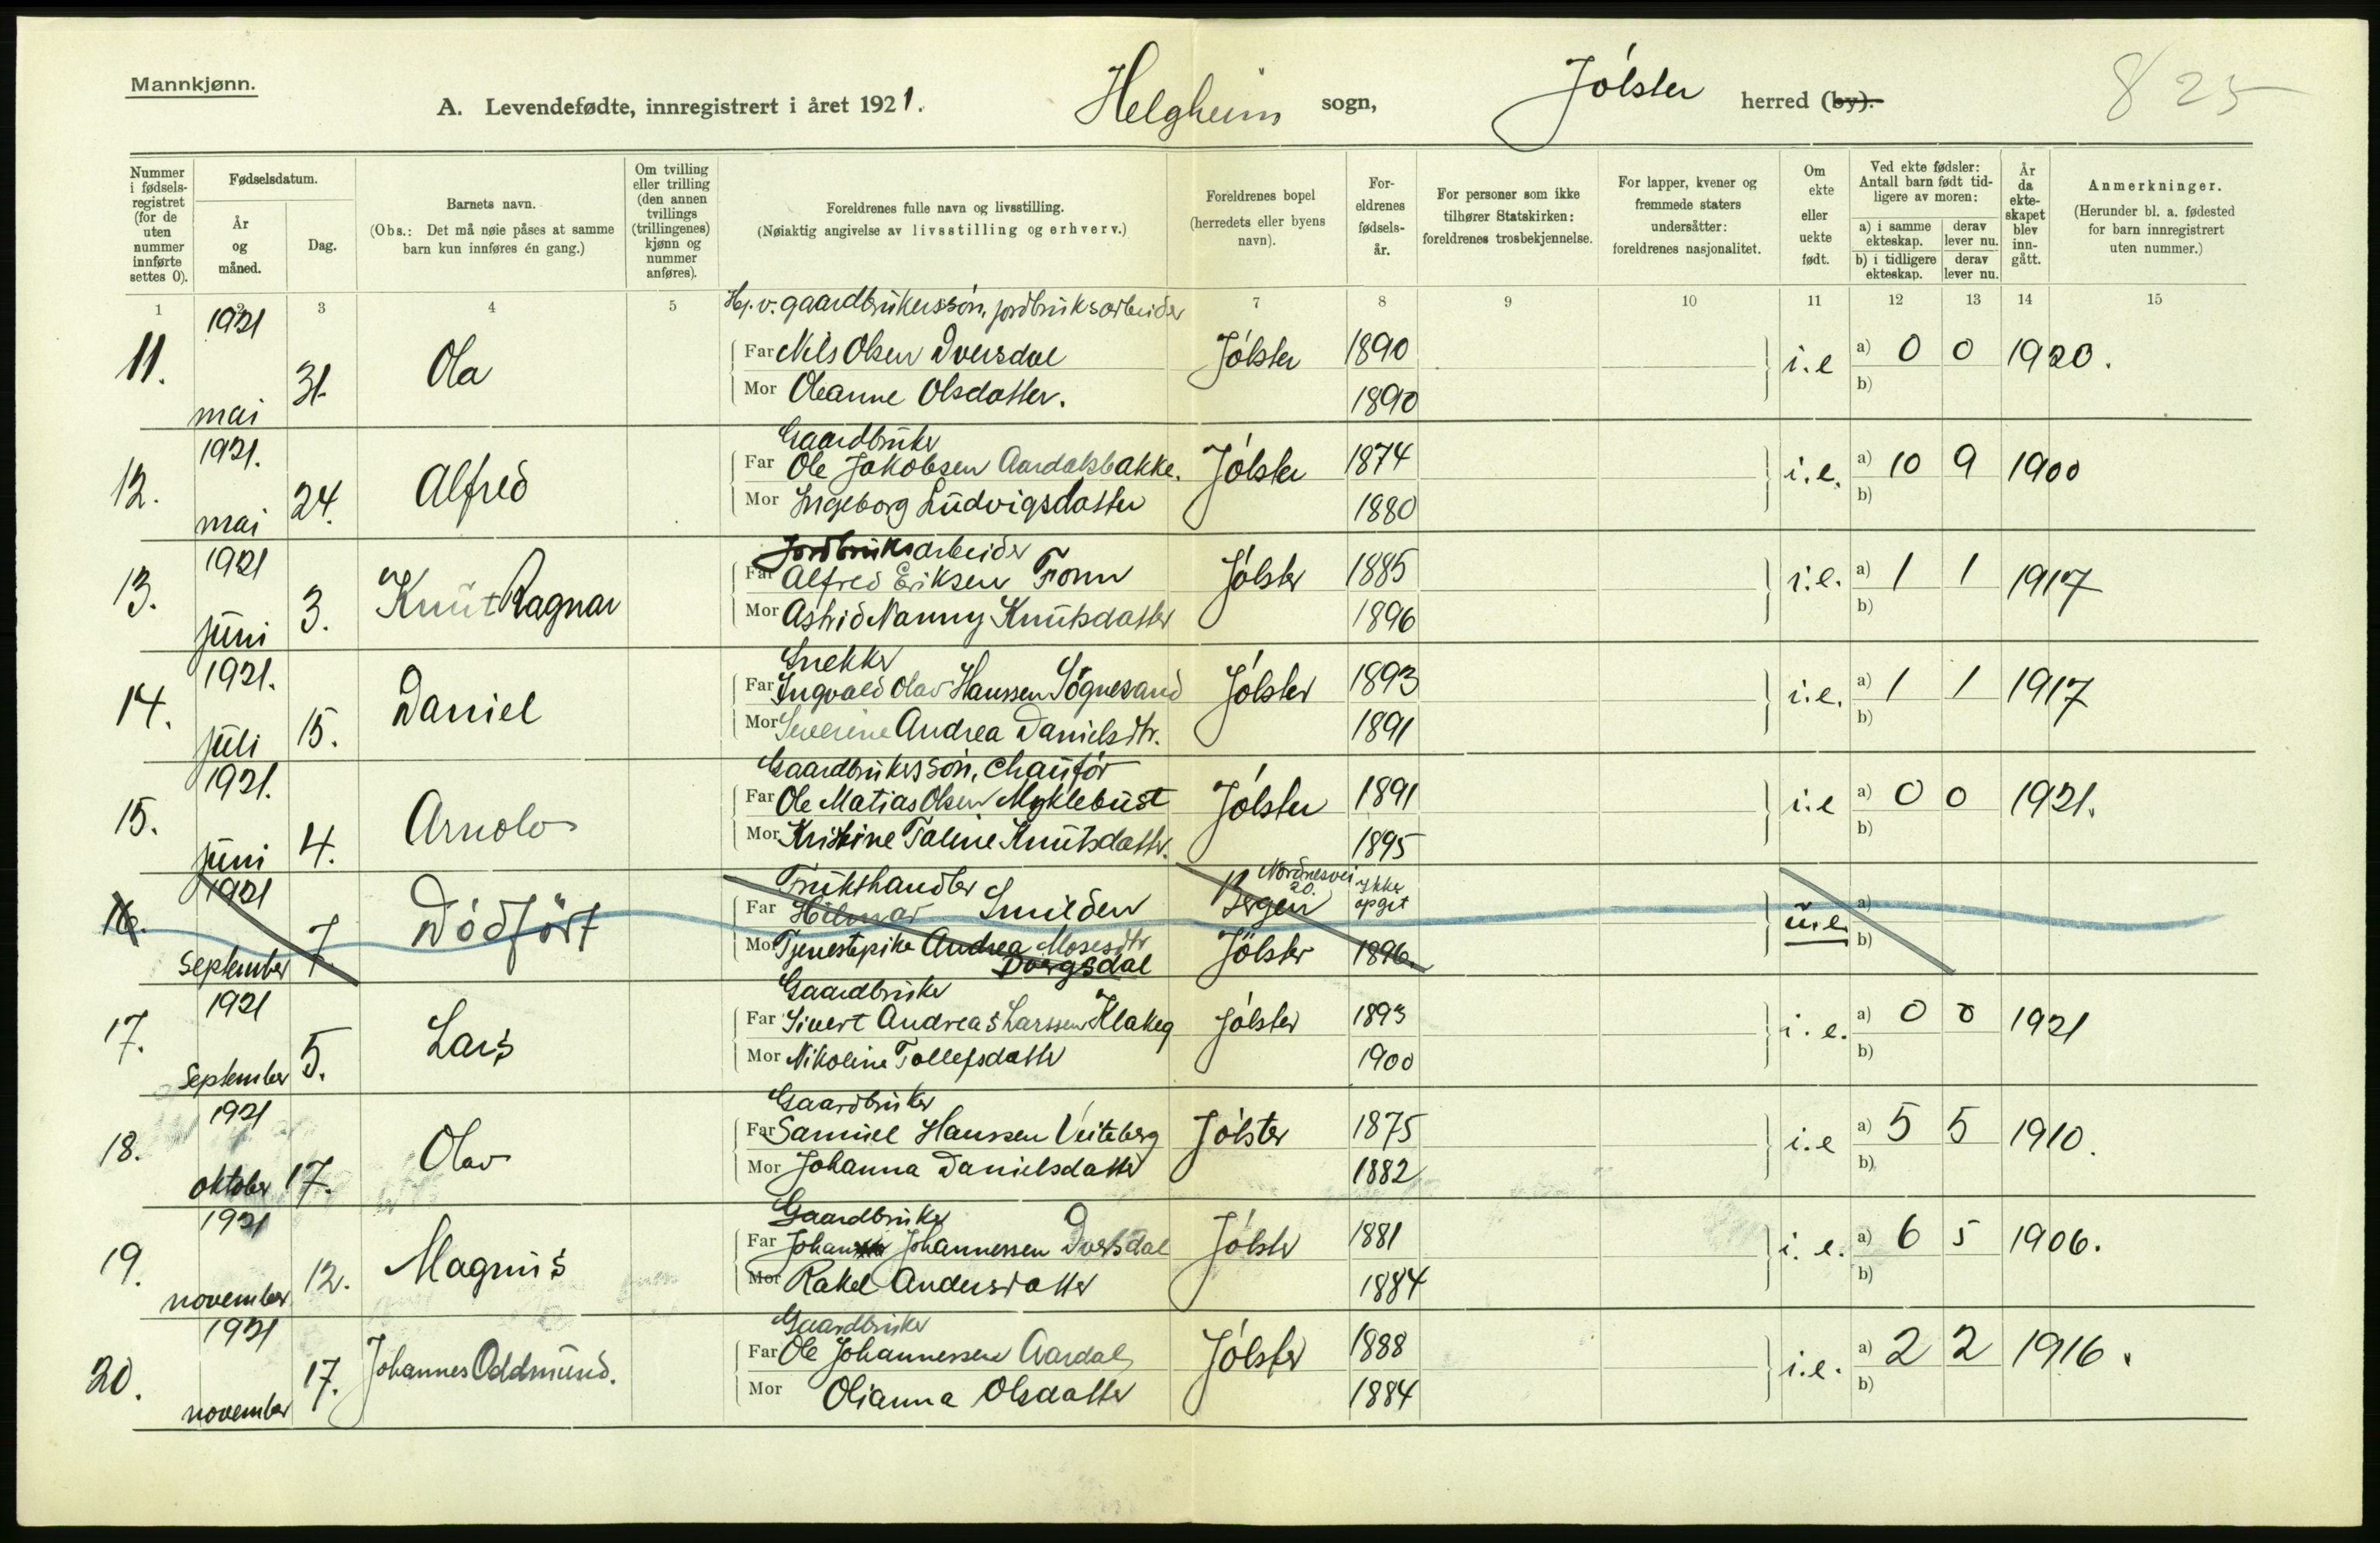 Mannkjønn.
A. Levendefødte, innregistrert i året 1921.
Helgheim sogn, Jølster herred (by).
825
Nummer i fødsels-registret (for de uten nummer innførte settes 0).
Fødselsdatum.
År og måned.
Dag.
Barnets navn.
(Obs.: Det må nøie påses at samme barn kun innføres én gang.)
Om tvilling eller trilling (den annen tvillings (trillingenes) kjønn og nummer anføres).
Foreldrenes fulle navn og livsstilling.
(Nøiaktig angivelse av livsstilling og erhverv.)
Foreldrenes bopel (herredets eller byens navn).
For-eldrenes fødsels-år.
For personer som ikke tilhører Statskirken: foreldrenes trosbekjennelse.
For lapper, kvener og fremmede staters undersåtter: foreldrenes nasjonalitet.
Om ekte eller uekte født.
Ved ekte fødsler: Antall barn født tid-ligere av moren:
a) i samme ekteskap. derav lever nu.
b) i tidligere ekteskap. derav lever nu.
År da ekte-skapet blev inn-gått.
Anmerkninger.
(Herunder bl. a. fødested for barn innregistrert uten nummer.)
1 2 3 4 5 7 8 9 10 11 12 13 14 15
Hj. v. gaardbrukerssøn, jordbruksarbeider
11. 1921 mai 31. Ola
Far Nils Olsen Dversdal Jølster 1890 i.e a) 0 0 1920.
Mor Oleanne Olsdatter. 1890 b)
Gaardbruker
12. 1921. mai 24. Alfred
Far Ole Jakobsen Aardalsbakke. Jølster 1874 i.e. a) 10 9 1900
Mor Ingeborg Ludvigsdatter 1880 b)
Jordbruksarbeider
13. 1921 juni 3. Knut Ragnar
Far Alfred Eriksen Fonn Jølster 1885 i.e. a) 1 1 1917
Mor Astrid Nanny Knutsdatter 1896 b)
Snekker
14. 1921. juli 15. Daniel
Far Ingvald Olav Hanssen Søgnesand Jølster 1893 i.e. a) 1 1 1917
Mor Severine Andrea Danielsdtr. 1891 b)
Gaardbrukerssøn, Chaufør
15. 1921. juni 4. Arnolv
Far Ole Matias Olsen Myklebust Jølster 1891 i.e a) 0 0 1921.
Mor Kristine Taline Knutsdatter. 1895 b)
Frukthandler
16. 1921 September 7. Dødført
Far Hilmar Smilden Bergen Nordnesvei 20. Ikke opgit u.e. a)
Mor Tjenestepike Andrea Mosesdtr Dvergsdal Jølster 1896. b)
Gaardbruker
17. 1921 September 5. Lars
Far Sivert Andreas Larssen Klakeg Jølster 1893 i.e. a) 0 0 1921
Mor Nikoline Tollefsdatter 1900 b)
Gaardbruker
18. 1921 oktober 17. Olav
Far Samuel Hanssen Veiteberg Jølster 1875 i.e a) 5 5 1910.
Mor Johanna Danielsdatter 1882 b)
Gaardbruker
19. 1921 november 12. Magnus
Far Johan Johannessen Dversdal Jølster 1881 i.e. a) 6 5 1906.
Mor Rakel Andersdatter 1884 b)
Gaardbruker
20. 1921 november 17. Johannes Oddmund.
Far Ole Johannessen Aardal Jølster 1888 i.e. a) 2 2 1916.
Mor Olianna Olsdatter 1884 b)